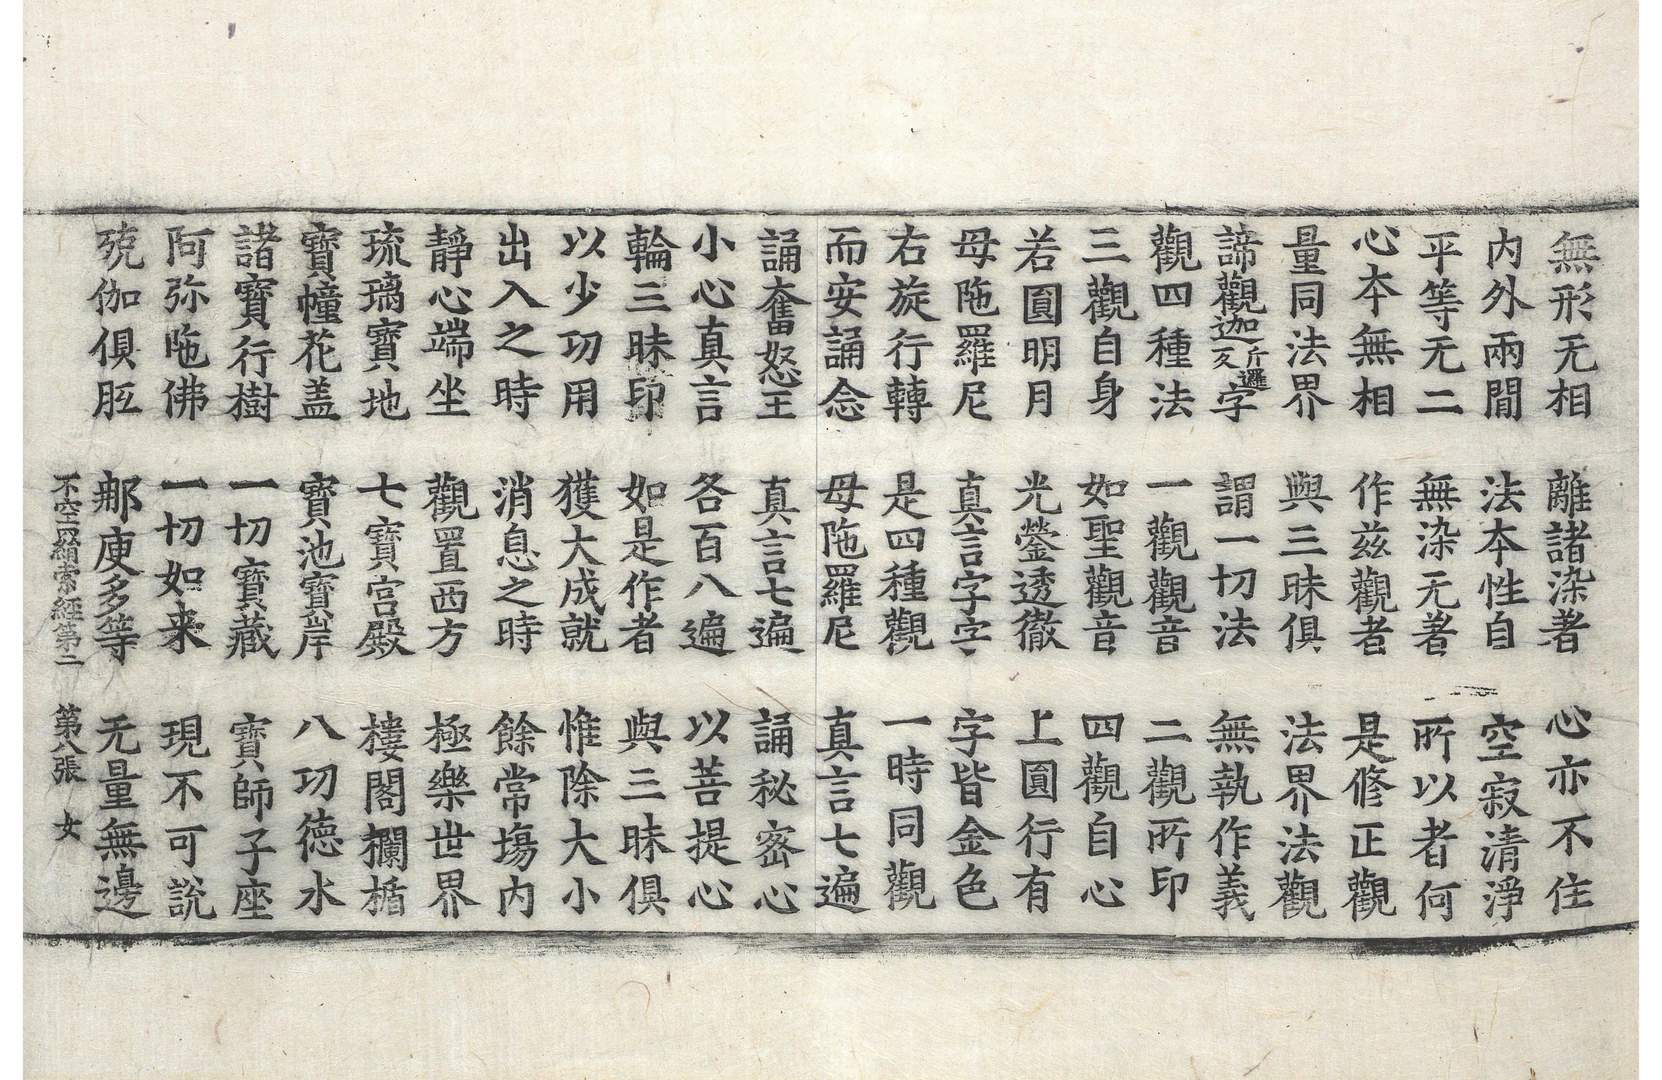 無形无相　離諸染著　心亦不住
内外兩間　法本性自　空寂清淨
平等无二　無染无著　所以者何
心本無相　作兹觀者　是修正觀
量同法界　與三昧俱　法界法觀
諦觀迦斤邏反字　謂一切法　無執作義
觀四種法　一觀觀音　二觀所印
三觀自身　如聖觀音　四觀自心
若圓明月　光瑩透徹　上圓行有
母陁羅尼　真言字字　字皆金色
右旋行轉　是四種觀　一時同觀
而安誦念　母陁羅尼　真言七遍
誦奮怒王　真言七遍　誦秘密心
小心真言　各百八遍　以菩提心
輪三昧印　如是作者　與三昧俱
以少功用　獲大成就　惟除大小
出入之時　消息之時　餘常塲内
靜心端坐　觀置西方　極樂世界
琉璃寶地　七寶宮殿　樓閣欄楯
寶幢花盖　寶池寶岸　八功德水
諸寶行樹　一切寶藏　寶師子座
阿弥陁佛　一切如来　現不可說
殑伽俱胝　那庾多等　无量無邊
不空羂索經第二　第八張　女